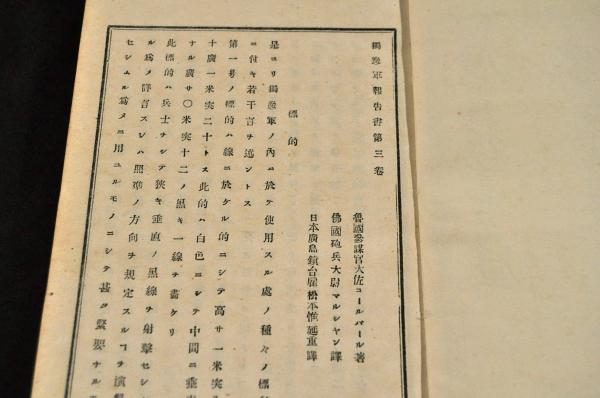 獨逸軍報告書第三卷
魯國參謀官大佐コールバール著
佛國砲兵大尉マルシヤン譯
日本廣島鎭台雇松本惟延重譯
標的
是ヨリ獨逸軍ノ內ニ於テ使用スル處ノ種々ノ標
ニ付キ若干言チ述ントス
第一号ノ標的ハ線ニ於ケル的ニシテ高サ一米突
十廣一米突二十トス此的ハ白色ニシテ中間ニ垂
ナル廣サ〇米突十二ノ黑キ一線チ畵ケリ
此標的ハ兵士チシテ狹キ垂直ノ黑線チ射擊セシ
ル爲メ詳言スレハ照準ノ方向チ規定スルヿチ演
セシムル爲メニ用ユルモノニシテ甚タ緊要ナル